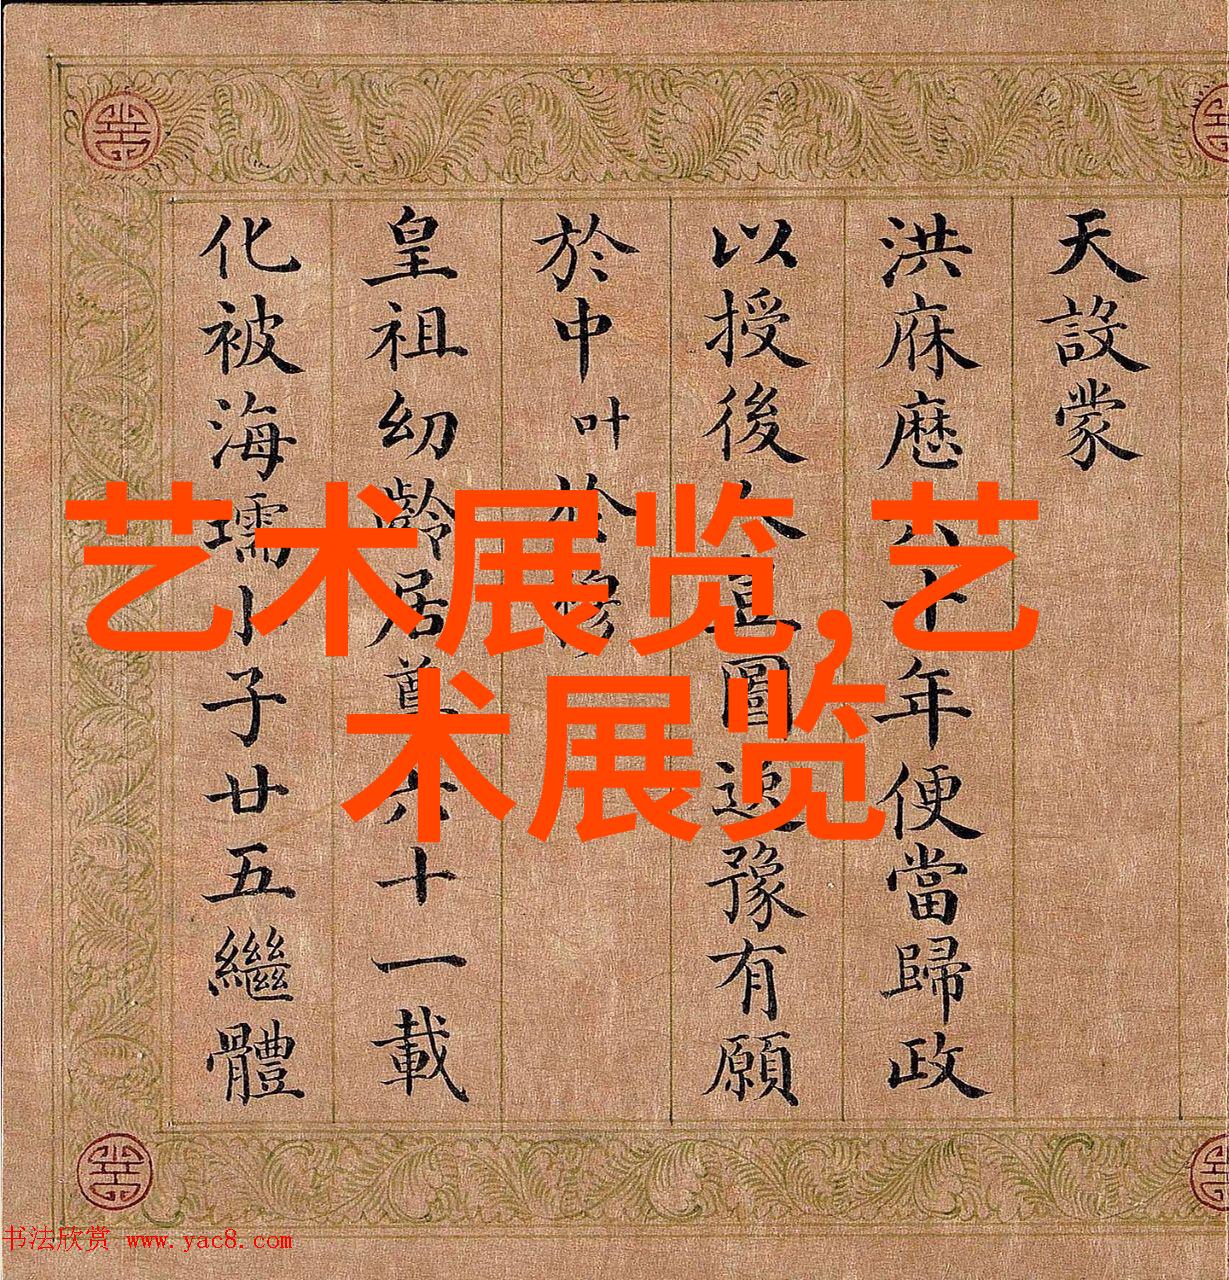 天設蒙
洪庥歷六十年便當歸政
以授後人豈圖逸豫有願
於中叶於穆
皇祖幼齡居尊六十一載
化被海壖小子廿五繼體
艺术展览,艺
术展览
书法欣赏 www.yac8.com